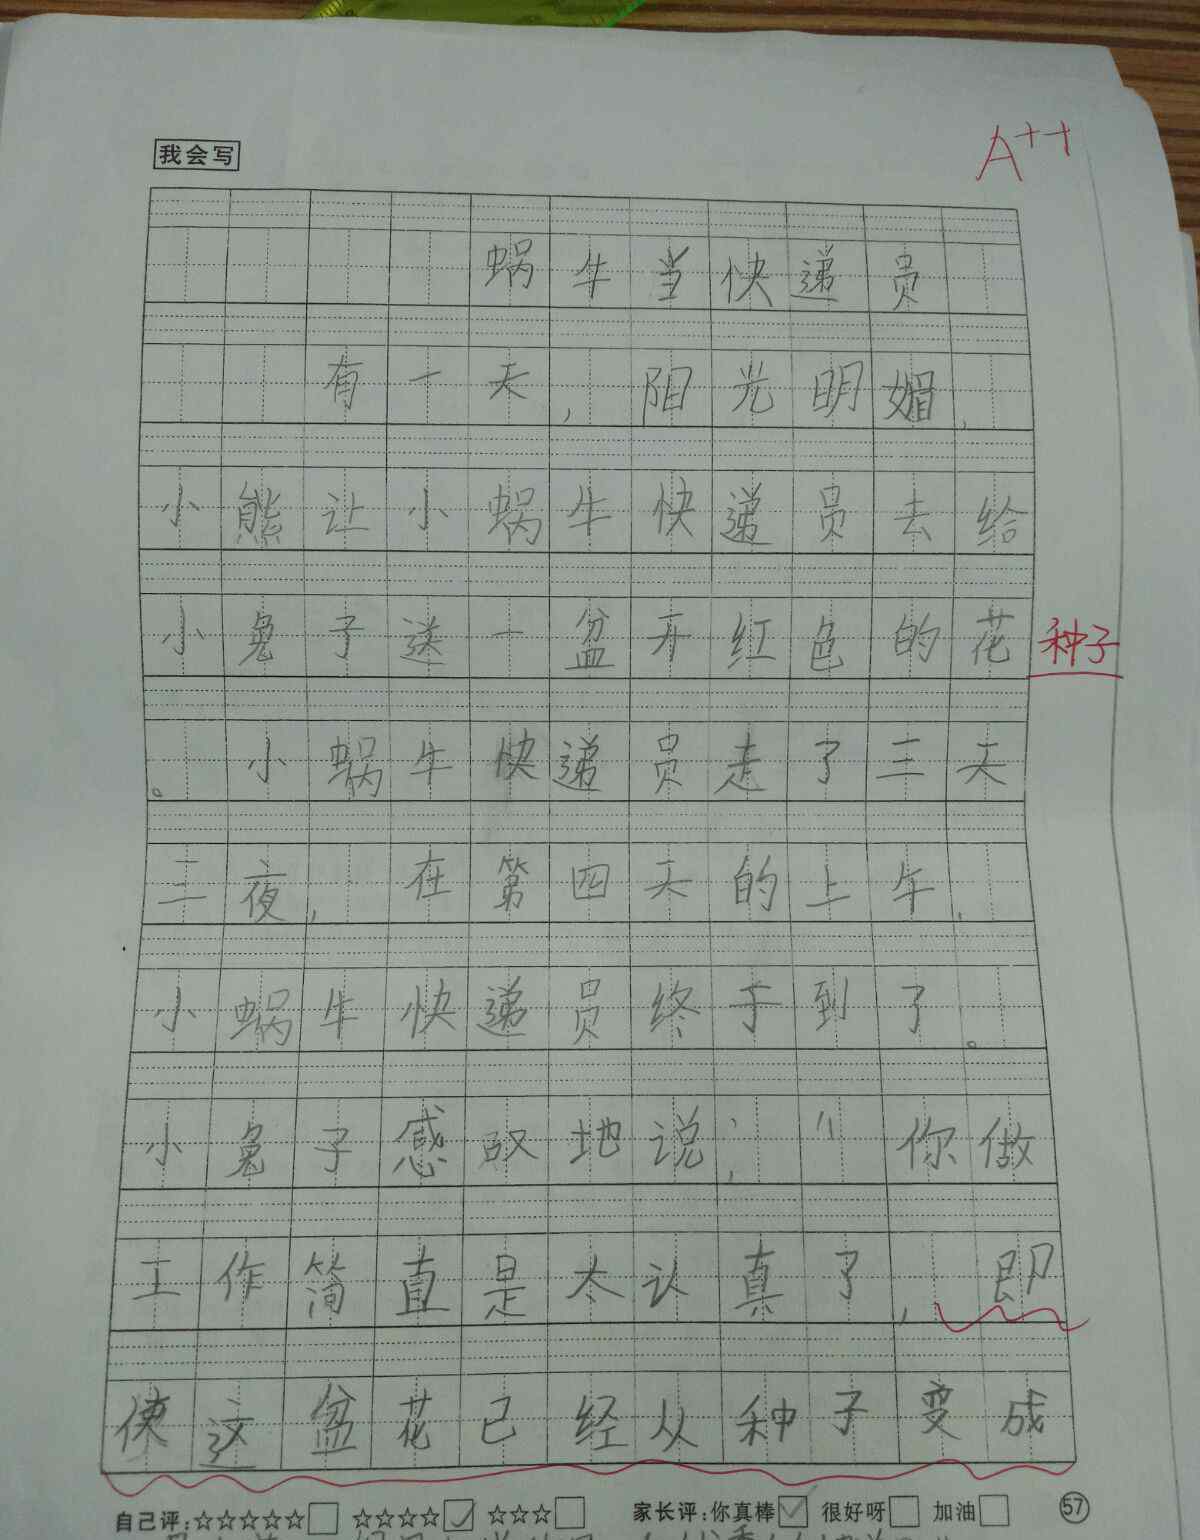 A++
我会写
蜗牛当快递员
有一天，阳光明媚，
小熊让小蜗牛快递员去给
小兔子送一盆开红色的花种子
。小蜗牛快递员走了三天
三夜，在第四天的上午，
小蜗牛快递员终于到了。
小兔子感叹地说：“你做
工作简直是太认真了，即
使这盆花已经从种子变成
自己评：☆☆☆☆☆ ☆☆☆☆ ☆☆☆ 家长评：你真棒 很好呀 加油 57